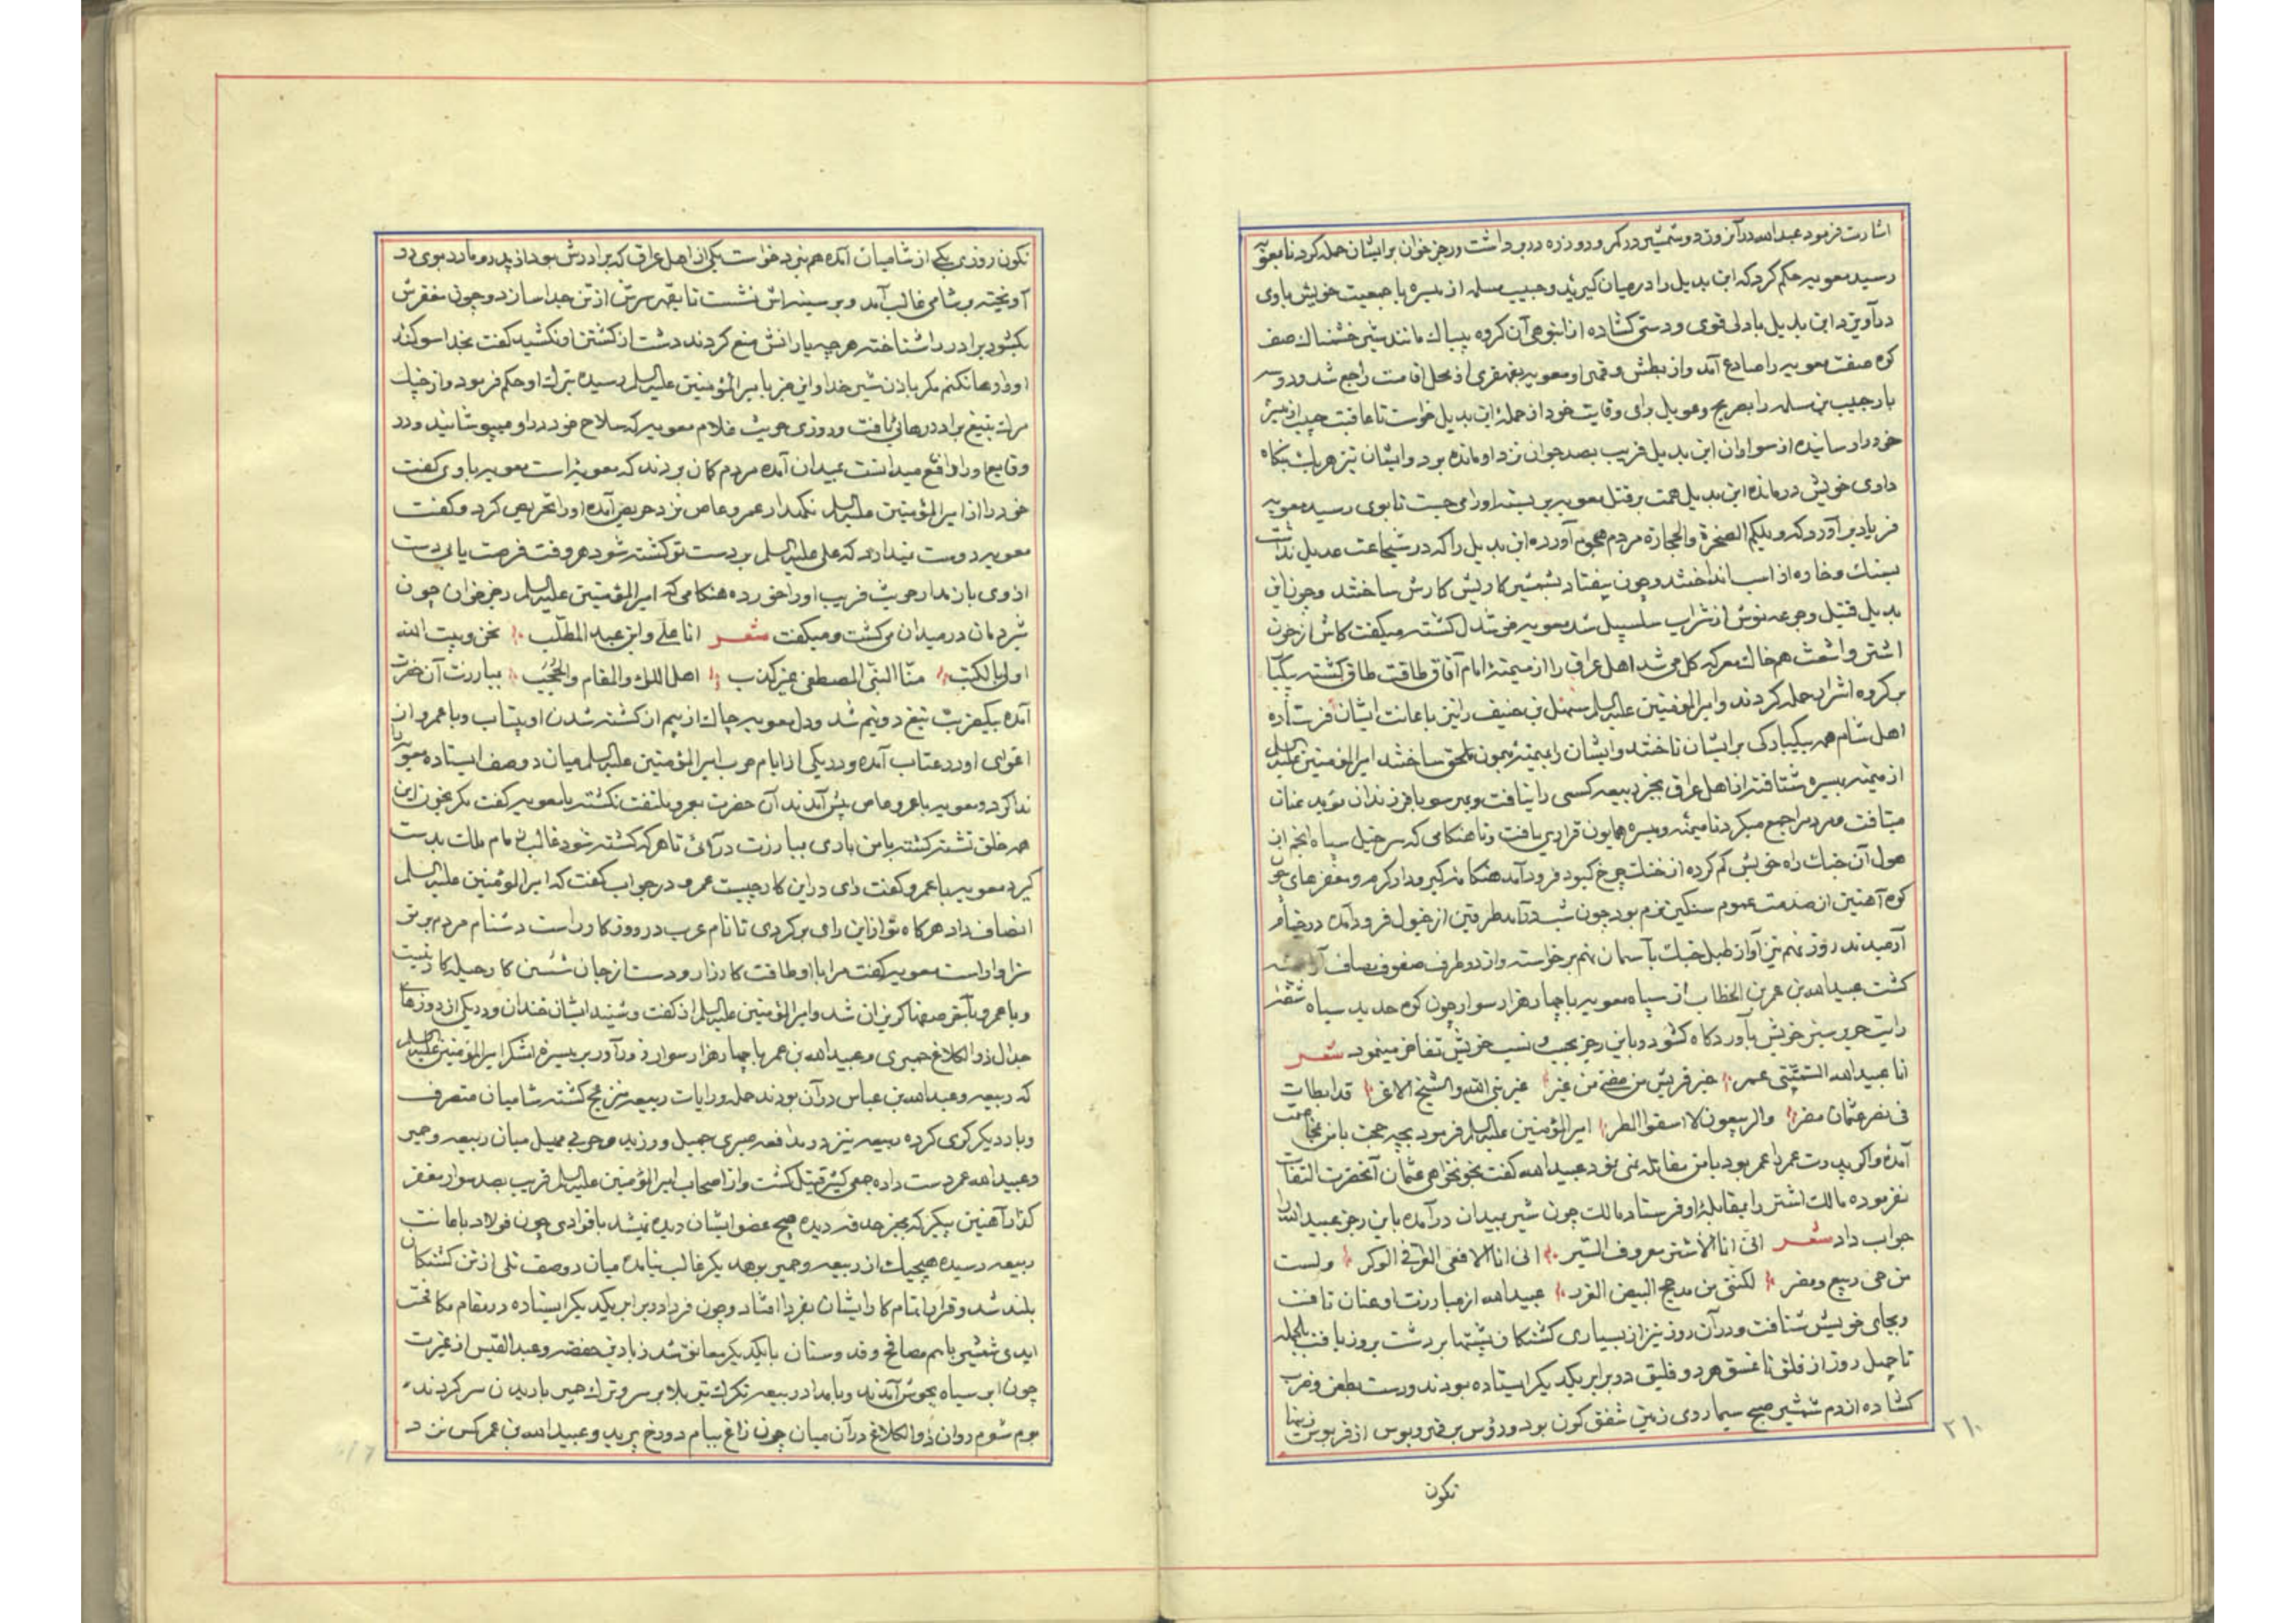 اشارت فرمود عبدالله در آنروز دو شمشیر در کمر و دو زره در بر داشت و رجز خوان بر ایشان حمله کرد تا بمعویه
رسید معویه حکم کرد که ابن بدیل را در میان گیرند و حبیب مسلمه از میسره با جمعیت خویش با وی
درآویزد ابن بدیل با دلی قوی و دستی کشاده از انبوهی آن کروه بیباک مانند شیر خشمناک صف
کوه صفت معویه را صادع آمد و از بطش و قهر او معویه بقهقری از محل اقامت راجع شد و دو سه
بار حبیب بن مسلمه را بصریح و عویل برای وقایت خود از حمله ابن بدیل خواست تا عاقبت حبیب از میسره
خود را رسانیده از سواران ابن بدیل قریب بصد جوان نزد او مانده بود و ایشان نیز هر یک بنکاه
داری خویش درمانده ابن بدیل همت بر قتل معویه بر بسته او را می جست تا بوی رسیده معویه
فریاد بر آورد که ویلکم الصخرة والحجارة مردم هجوم آورده ابن بدیل را که در شجاعت عدیل نداشت
بسنک و خاره از اسب انداختند و چون بیفتاد بشمشیر کارش ساختند و چون ابن
بدیل قتیل و جرعه نوش از شراب سلسبیل شد معویه خوشدل کشته میکفت کاش از خون
اشتر و اشعث هم خاک معرکه کل می شد اهل عراق را از میمنهٔ امام آفاق طاقت طاق کشته بیکبار
بر کروه اشرار حمله کردند و امیرالمؤمنین علیه السلم سهل بن حنیف را نیز باعانت ایشان فرستاده
اهل شام همه بیکبارکی بر ایشان تاختند و ایشان را بمیمنهٔ میمون ملحق ساختند امیرالمؤمنین علیه السلم
از میمنه بمیسره شتافته از اهل عراق بجز ربیعه کسی را نیافت و بهر سو با فرزندان مؤید عنان
میتافت و مردم را جمع میکرد تا میمنه و میسره همایون قرار یافت و تا هنکامی که سرخیل سپاه انجم از
هول آن جنک راه خویش کم کرده از خنک چرخ کبود فرود آمد هنکامه کیرودار کرم و مغفرهای چون
کوه آهنین از صدمت عمود سنکین نرم بود چون شب درآمد طرفین از خیول فرود آمده در خیام
آرمیدند روز نهم نیز آواز طبل جنک بآسمان نهم برخواسته و از دو طرف صفوف مصاف آراسته
کشت عبیدالله بن عمر بن الخطاب از سپاه معویه با چهار هزار سوار چون کوه حدید سیاه شقه
رایت حریر سبز خویش بآوردکاه کشود و باین رجز بحسب و نسب خویش تفاخر مینمود شعر
انا عبیدالله السمّیتی عمر خیر قریش من مضی من غبر غیر نبی الله والشیخ الاغر قد ابطات
فی نصر عثمان مضر والربیعون لا اسقوا المطر امیرالمؤمنین علیه السلم فرمود بچه حجت با من بمخاصمت
آمدهٔ و اکر پدرت عمر را عمر بود با من مقاتله نمی نمود عبیدالله کفت بخونخواهی عثمان آنحضرت التفات
نفرموده مالک اشتر را بمقابلهٔ او فرستاد مالک چون شیر بمیدان درآمده باین رجز عبیدالله را
جواب داد شعر انی انا الاشتر معروف السّیر انی انا الافعی العراقی الذکر ولست
من حی ربیع و مضر لکننی من مذحج البیض الغرر عبیدالله از مبارزت او عنان تافت
و بجای خویش شتافت و در آن روز نیز از بسیاری کشتکان پشتها بر دشت بروز یافت بالجمله
تا چهل روز از فلق تا غسق هر دو فلیق در برابر یکدیکر ایستاده بودند و دست بطعن و ضرب
کشاده از دم شمشیر صبح سیما روی زمین شفق کون بود و رؤس بی قربوس از قربوس زینها
نکون
۲۱۰
نکون روزی یکی از شامیان آمده هم نبرد خواست یکی از اهل عراق که برادرش بود از پدر و مادر بوی در
آویخته و شامی غالب آمد و بر سینه اش نشست تا بقهر سرش از تن جدا سازد و چون مغفرش
بکشود برادر را شناخته هر چه یارانش منع کردند دست از کشتن او نکشید کفت بخدا سوکند
او را رها نکنم مکر باذن شیر خدا و این خبر بامیرالمؤمنین علیه السلم رسیده بترک او حکم فرمود و از چنک
مرک بتیغ برادر رهائی یافت و روزی حریث غلام معویه که سلاح خود در او میپوشانید و در
وقایع او را واقع میدانست بمیدان آمده مردم کمان بردند که معویه است معویه باوی کفت
خود را از امیرالمؤمنین علیه السلم نکهدار عمرو عاص نزد حریث آمده او را تحریص کرد و کفت
معویه دوست نیدارد که علی علیه السلم بر دست تو کشته شود هر وقت فرصت یابی دست
از وی باز مدار حریث فریب او را خورده هنکامی که امیرالمؤمنین علیه السلم رجز خوان چون
شیر دمان در میدان می کشت و میکفت شعر انا علی وابن عبد المطّلب نحن وبیت الله
اولی بالکتب منّا النبّی المصطفی غیر کذب اهل اللواء والمقام والحُجُب بمبارزت آن حضرت
آمده بیکضربت تیغ دو نیم شد و دل معویه چاک از بیم از کشته شدن او بیتاب و با عمرو از
اغوای او در عتاب آمده و در یکی از ایام حرب امیرالمؤمنین علیه السلم میان دو صف ایستاده معویه را
ندا کرد و معویه با عمرو عاص پیش آمدند آن حضرت بعمرو ملتفت نکشته با معویه کفت مکر بخون این
همه خلق تشنه کشتهٔ با من باری بمبارزت درآئی تا هر که کشته شود غالب زمام ملک بدست
کیرد معویه با عمرو کفت رای در این کار چیست عمرو در جواب کفت که امیرالمؤمنین علیه السلم
انصاف داد هرکاه تو از این رای برکردی تا نام عرب در روزکار است دشنام مردم بر تو
سزاوار است معویه کفت مرا با او طاقت کارزار و دست از جان شستن کار حیله کار نیست
و با عمرو بآخر صفها کریزان شد و امیرالمؤمنین علیه السلم از کفت و شنید ایشان خندان و در یکی از روزهای
جدال ذوالکلاع حمیری و عبیدالله بن عمر با چهار هزار سوار زورآور بر میسرهٔ لشکر امیرالمؤمنین علیه السلم
که ربیعه و عبدالله بن عباس در آن بودند حمله ور رایات ربیعه متزعزع کشته شامیان منصرف
و بار دیکر کری کرده ربیعه نیز در مدافعه صبری جمیل ورزید و حربی مهیل میان ربیعه و حمیر
و عبیدالله عمر دست داده جمعی کثیر قتیل کشت و از اصحاب امیرالمؤمنین علیه السلم قریب بصد سوار مغفر
کذار آهنین پیکر که بجز حدقه دیده هیچ عضو ایشان دیده نمیشد با قوادی چون فولاد باعانت
ربیعه رسیده هیچیک از ربیعه و حمیر بر همدیکر غالب نیامده میان دو صف تلی از تن کشتکان
بلند شد و قرار اتمام کار ایشان بفردا افتاد و چون فردا در برابر یکدیکر ایستاده در مقام مکافحت
ایدی شمشیر باهم مصافح و قد و سنان با یکدیکر معانق شد زیاد بن خصفه و عبدالقیس از غیرت
چون ابر سیاه بجوش آمدند و با مدد ربیعه تکرک تیر بلا بر سر و ترک حمیر باریدن سر کردند
بوم شوم روان ذوالکلاع در آن میان چون زاغ ببام دوزخ پرید و عبیدالله بن عمر کس نزد